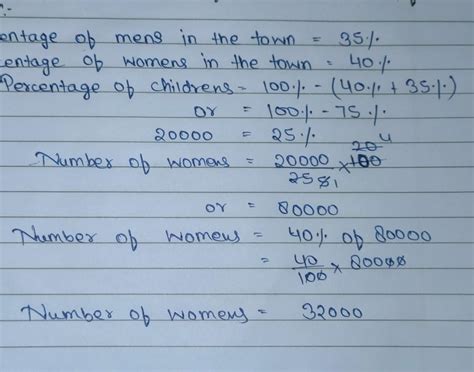 entage of mens in the town = 35%
centage of womens in the town = 40%
Percentage of childrens = 100% - (40% + 35%)
or = 100% - 75%
20000 = 25%
Number of womens = 20000/25 × 100
or = 80000
Number of womens = 40% of 80000
= 40/100 × 80000
Number of womens = 32000